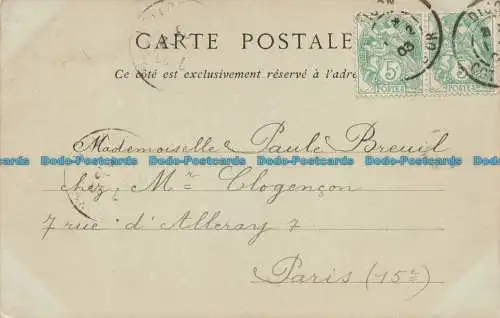 CARTE POSTALE
Ce côté est exclusivement réservé à l'adre
5 5
POSTES POSTES
Mademoiselle Paule Breuil
Dodo-Postcards Dodo-Postcards Dodo-Postcards Dodo-Postcards Dodo-Postcards
chez Mr Clogençon
7 rue d'Alleray 7
Paris (15e)